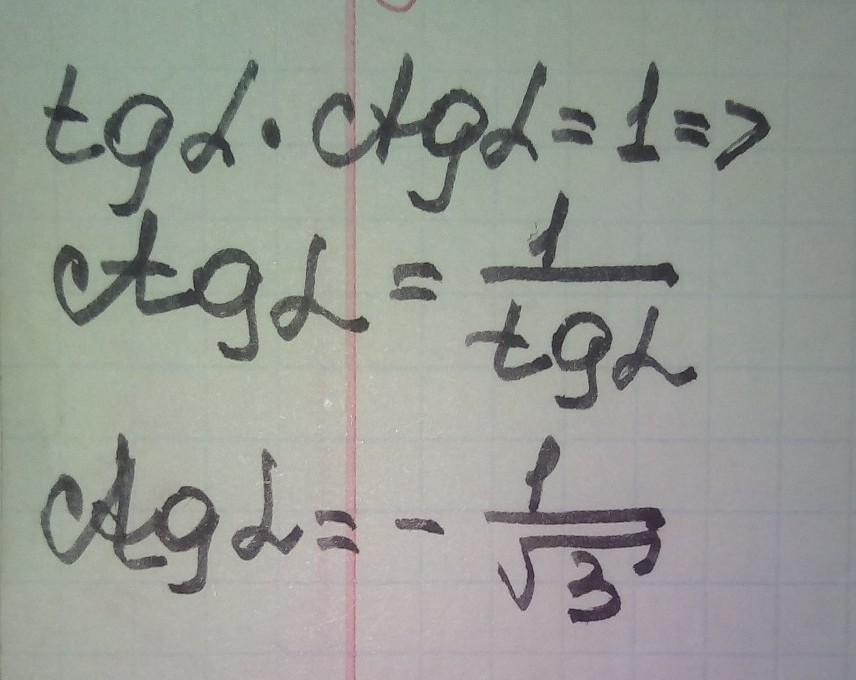 tgα · ctgα = 1 =>
ctgα = 1/tgα
ctgα = - 1/√3